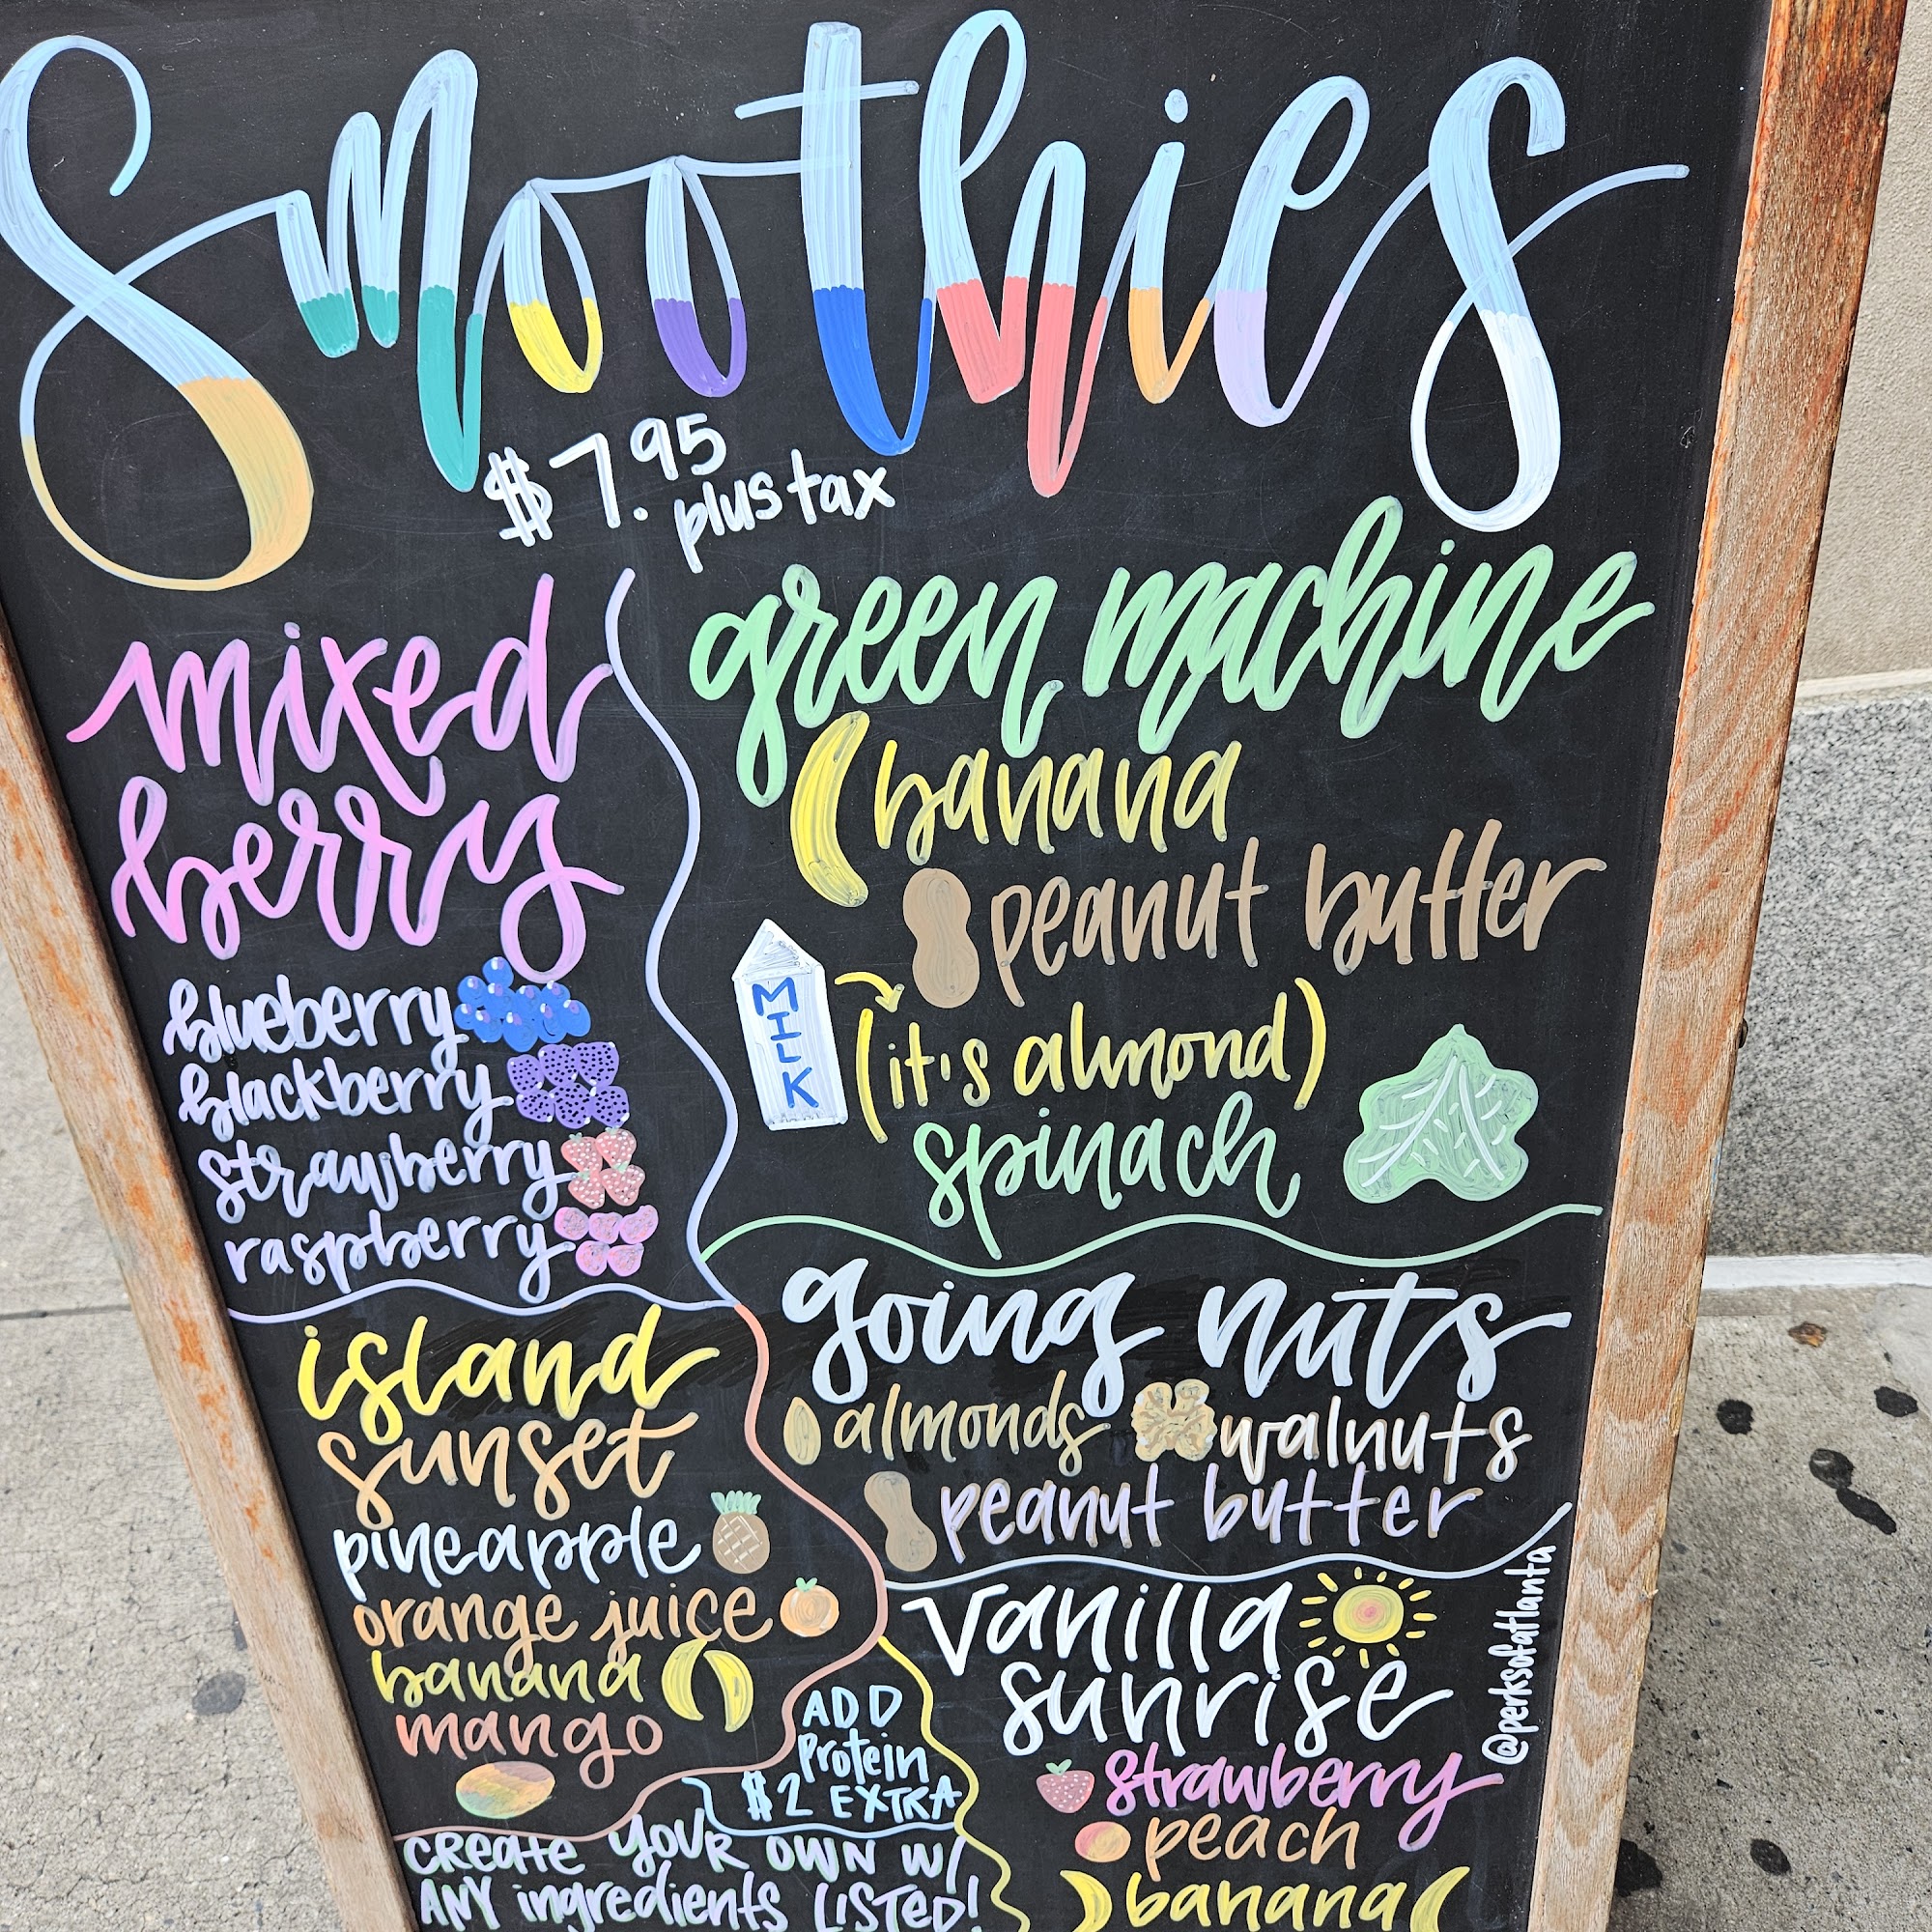 Smoothies
$7.95
plus tax
mixed
berry
blueberry
blackberry
strawberry
raspberry
green machine
banana
peanut butter
MILK
(it's almond)
spinach
island
sunset
pineapple
orange juice
banana
mango
going nuts
almonds walnuts
peanut butter
vanilla
sunrise
strawberry
peach
banana
ADD
Protein
$2 EXTRA
CREATE YOUR OWN W/
ANY ingredients LISTED!
@perksofatlanta